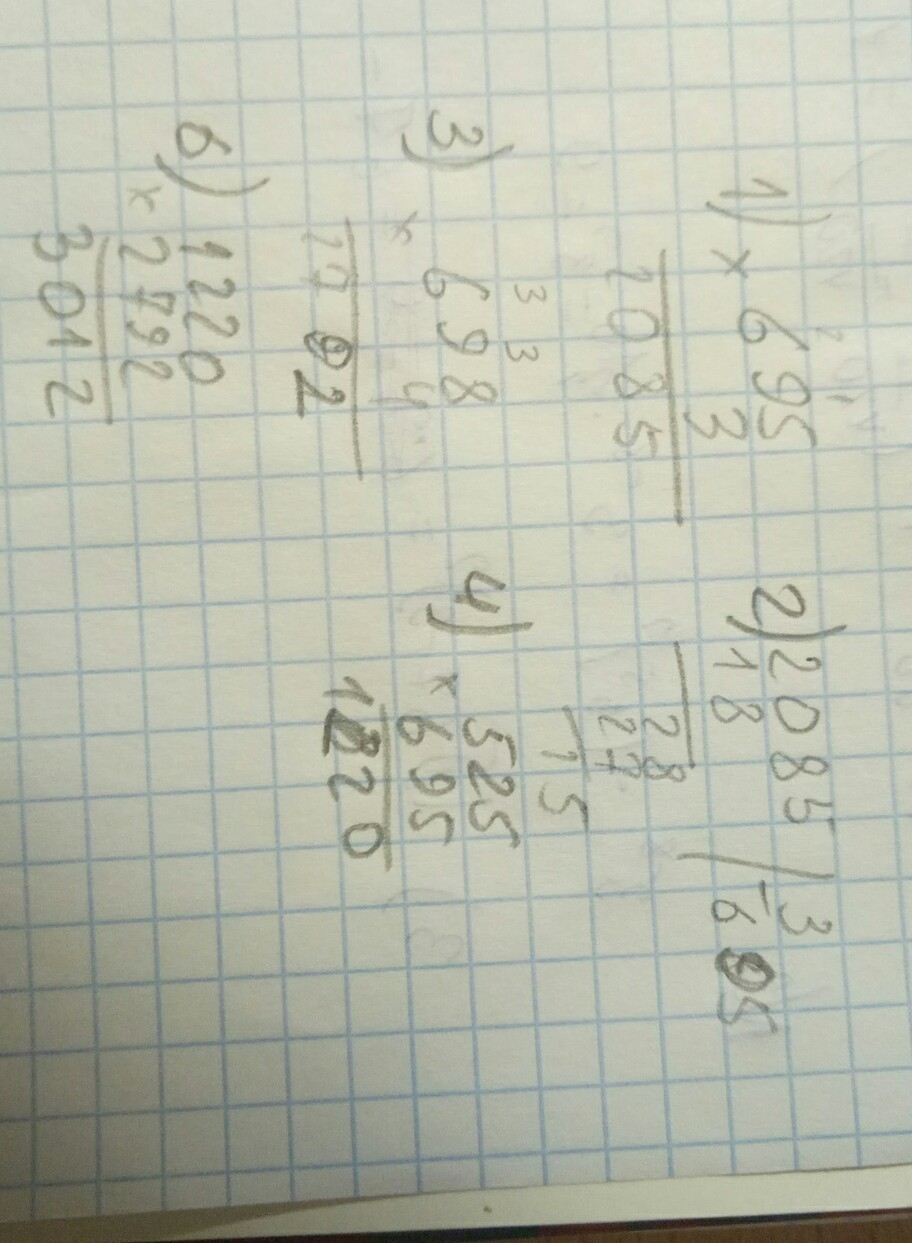 1) × 695
3
2085
2) 2085 / 3
18 695
28
27
15
3 3
3) × 698
4
2792
4) × 525
695
1220
6) × 1220
2792
3012